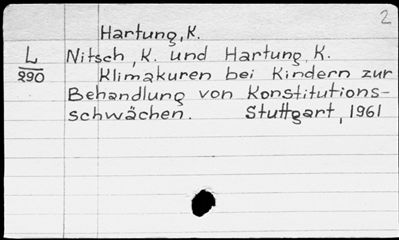 2
Hartung, K.
L
290
Nitsch, K. und Hartung, K.
Klimakuren bei Kindern zur
Behandlung von Konstitutions-
schwächen. Stuttgart, 1961